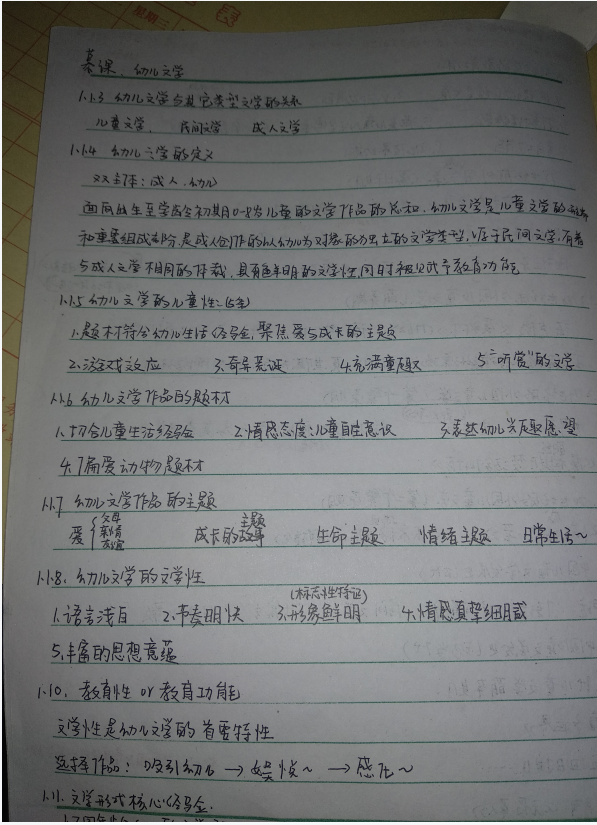 慕课、幼儿文学
1.1.3 幼儿文学与其它类型文学的关系
儿童文学、 民间文学 成人文学
1.1.4 幼儿文学的定义
双主体:成人、幼儿
面向出生至学龄初期0-8岁儿童的文学作品的总和、幼儿文学是儿童文学的
和重要组成部分,是成人创作的以幼儿为对象的独立的文学类型,源于民间文学,有着
与成人文学相同的体裁,具有鲜明的文学性,同时被赋予教育功能
1.1.5 幼儿文学的儿童性:(5条)
1.题材符合幼儿生活经验,聚焦爱与成长的主题
2.游戏效应 3.奇异荒诞 4.充满童趣 5."听赏"的文学
1.1.6 幼儿文学作品的题材
1.切合儿童生活经验 2.情感态度:儿童自主意识 3.表然幼儿兴趣愿望
4.偏爱动物题材
1.1.7 幼儿文学作品的主题
爱{父母 亲情 友谊 成长的故事 主题 生命主题 情绪主题 日常生活~
1.1.8. 幼儿文学的文学性
1.语言浅白 2.节奏明快 3.形象鲜明 (标志性特征) 4.情感真挚细腻
5.丰富的思想意蕴
1.10. 教育性 or 教育功能
文学性是幼儿文学的首要特性
选择作品: 吸引幼儿 → 娱悦~ → 感化~
1.11.文学形成核心经验.